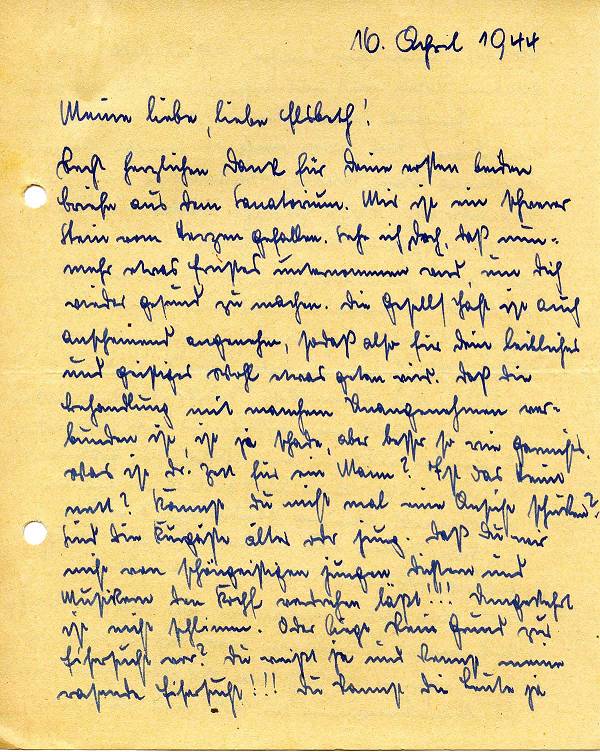 16. April 1944
Meine liebe, liebe Elsbeth!
Recht herzlichen Dank für Deine ersten beiden
Briefe aus dem Sanatorium. Mir ist ein schwerer
Stein vom Herzen gefallen. Sehe ich doch, daß nun-
mehr etwas Ernstes unternommen wird, um Dich
wieder gesund zu machen. Die Gesellschaft ist auch
anscheinend angenehm, sodaß also für Dein leibliches
und geistiges Wohl etwas getan wird. Daß die
Behandlung mit manchem Unangenehmen ver-
bunden ist, ist ja schade, aber besser so wie garnichts.
Was ist Dr. Zett für ein Mann? Ist das Heim
nett? Kannst Du nicht mal eine Ansicht schicken?
Sind die Kurgäste älter oder jung. Daß Du mir
nicht von schöngeistigen jungen Dichtern und
Musikern den Kopf verdrehen läßt!!! Umgekehrt
ist nicht schlimm. Oder liegt kein Grund zur
Eifersucht vor? Du weißt ja und kennst meine
rasende Eifersucht!!! Du kannst die Leute ja